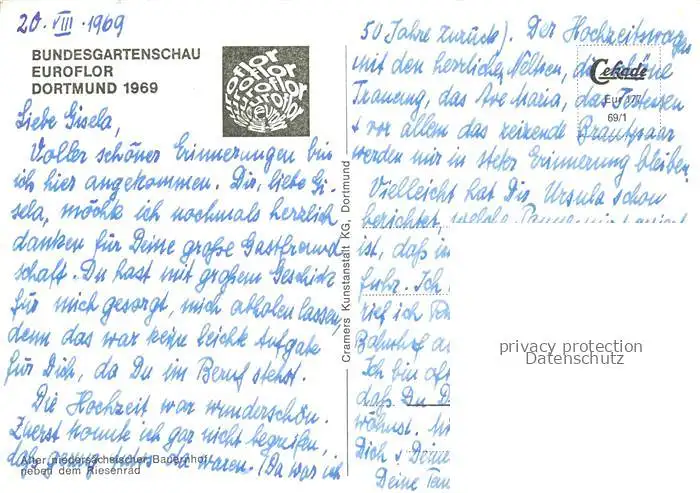 20. VIII. 1969
BUNDESGARTENSCHAU
EUROFLOR
DORTMUND 1969
Liebe Gisela,
Voller schöner Erinnerungen bin
ich hier angekommen. Dir, liebe Gi-
sela, möchte ich nochmals herzlich
danken für Deine große Gastfreund
schaft. Du hast mit großem Geschick
für mich gesorgt, mich abholen lassen,
denn das war keine leichte Aufgabe
für Dich, da Du im Beruf stehst.
Die Hochzeit war wunderschön.
Zuerst konnte ich gar nicht begreifen,
daß 50 Jahre da waren. (Du war ich
Alter niedersächsischer Bauernhof
neben dem Riesenrad
Cramers Kunstanstalt KG, Dortmund
50 Jahre zurück). Der Hochzeitswagen
mit den herrlichen Nelken, die schöne
Trauung, das Ave Maria, das Festessen
+ vor allem das reizende Brautpaar
werden mir in steter Erinnerung bleiben.
Vielleicht hat Dir Ursula schon
berichtet, welche
ist, daß
fuhr. Ich
rief ich
Bahnhof
Ich bin oft
daß Du D
wohnst.
Dich + Deine
Deine
Cekade
Eur 177
69/1
privacy protection
Datenschutz